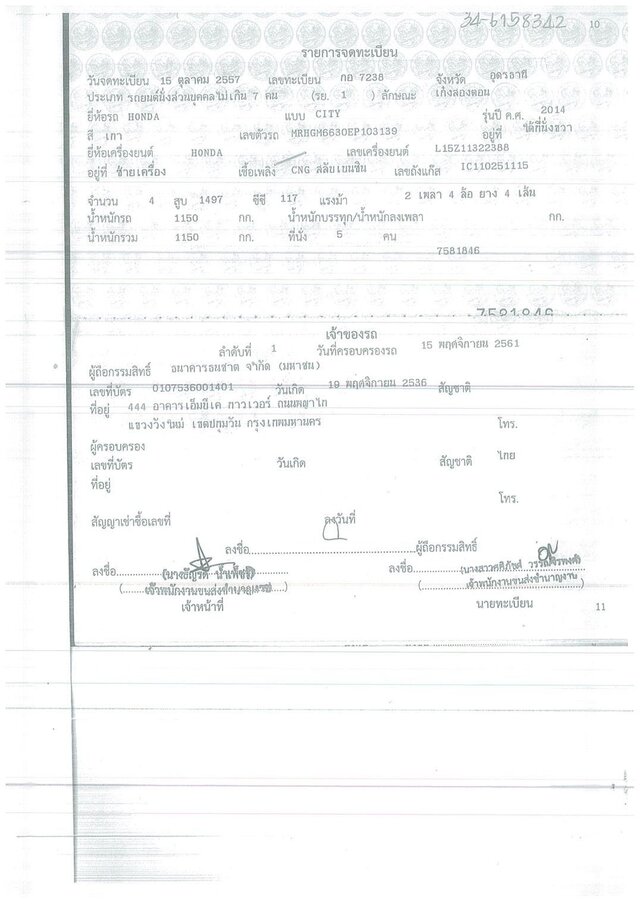 34-6158342 10
รายการจดทะเบียน
วันจดทะเบียน 15 ตุลาคม 2557 เลขทะเบียน กอ 7238 จังหวัด อุดรธานี
ประเภท รถยนต์นั่งส่วนบุคคลไม่เกิน 7 คน (รย. 1 ) ลักษณะ เก๋งสองตอน
ยี่ห้อรถ HONDA แบบ CITY รุ่นปี ค.ศ. 2014
สี เทา เลขตัวรถ MRHGM6630EP103139 อยู่ที่ ใต้ที่นั่งขวา
ยี่ห้อเครื่องยนต์ HONDA เลขเครื่องยนต์ L15Z11322388
อยู่ที่ ซ้ายเครื่อง เชื้อเพลิง CNG สลับเบนซิน เลขถังแก๊ส IC110251115
จำนวน 4 สูบ 1497 ซีซี 117 แรงม้า 2 เพลา 4 ล้อ ยาง 4 เส้น
น้ำหนักรถ 1150 กก. น้ำหนักบรรทุก/น้ำหนักลงเพลา กก.
น้ำหนักรวม 1150 กก. ที่นั่ง 5 คน
7581846
7581846
เจ้าของรถ
ลำดับที่ 1 วันที่ครอบครองรถ 15 พฤศจิกายน 2561
ผู้ถือกรรมสิทธิ์ ธนาคารธนชาต จำกัด (มหาชน)
เลขที่บัตร 0107536001401 วันเกิด 19 พฤศจิกายน 2536 สัญชาติ
ที่อยู่ 444 อาคารเอ็มบีเค ทาวเวอร์ ถนนพญาไท
แขวงวังใหม่ เขตปทุมวัน กรุงเทพมหานคร โทร.
ผู้ครอบครอง
เลขที่บัตร วันเกิด สัญชาติ ไทย
ที่อยู่
โทร.
สัญญาเช่าซื้อเลขที่ ลงวันที่
ลงชื่อ ผู้ถือกรรมสิทธิ์
ลงชื่อ ลงชื่อ
เจ้าพนักงานขนส่งชำนาญงาน เจ้าพนักงานขนส่งชำนาญงาน
เจ้าหน้าที่ นายทะเบียน 11